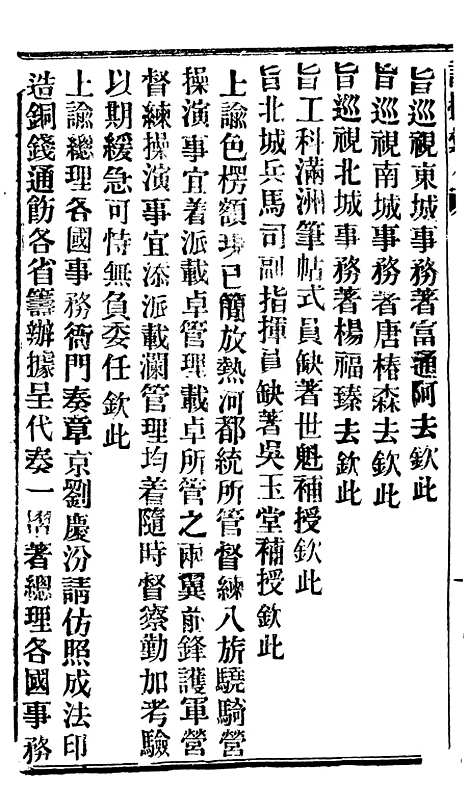 旨巡視東城事務著富通阿去欽此
旨巡視南城事務著唐椿森去欽此
旨巡視北城事務著楊福臻去欽此
旨工科滿洲筆帖式員缺著世魁補授欽此
旨北城兵馬司副指揮員缺著吳玉堂補授欽此
上諭色楞額現已簡放熱河都統所管督練八旂驍騎營
操演事宜着派載卓管理載卓所管之兩翼前鋒護軍營
督練操演事宜添派載瀾管理均着隨時督察勤加考驗
以期緩急可恃無負委任欽此
上諭總理各國事務衙門奏章京劉慶汾請仿照成法印
造銅錢通飭各省籌辦據呈代奏一摺著總理各國事務